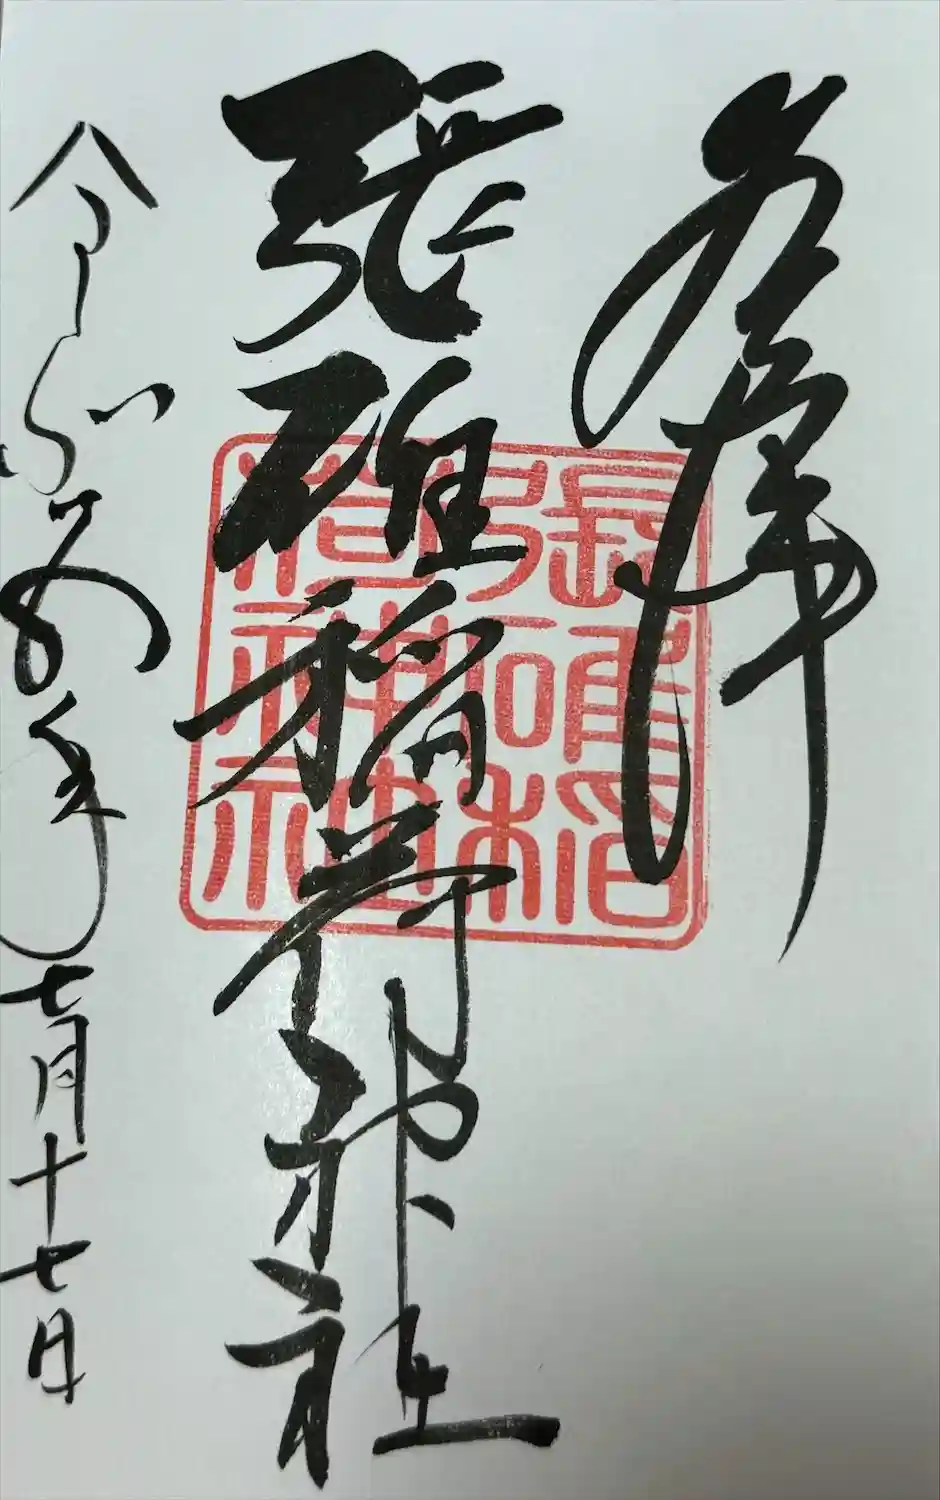 奉拝
張碓稲荷神社
張碓稲
荷神社
令和五年七月十七日